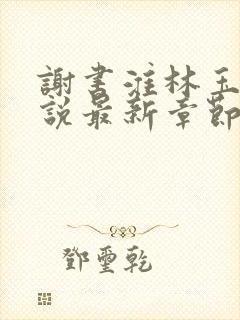 謝書淮林玉
說最新章節
鄧璽乾